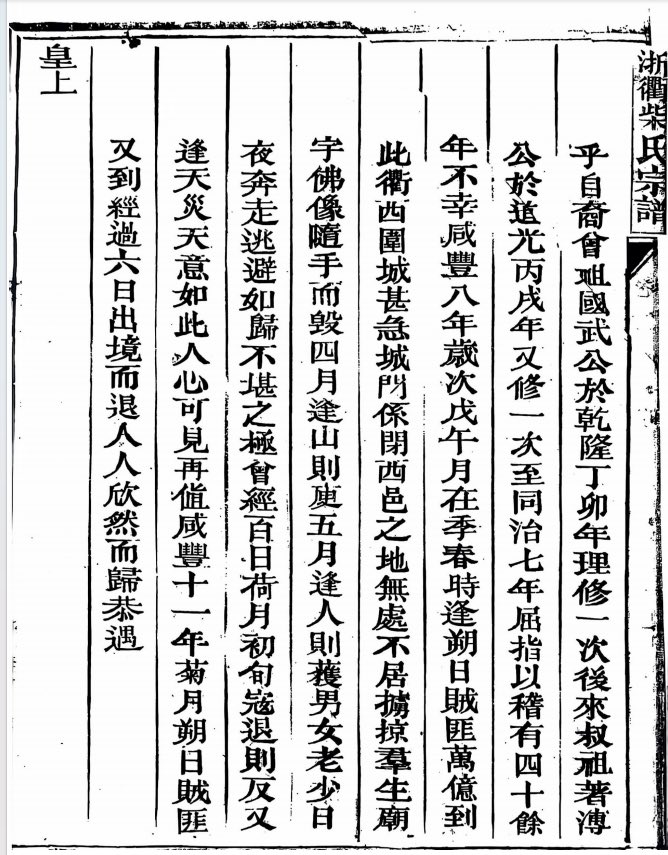 浙衢柴氏宗譜
乎自裔曾祖國武公於乾隆丁卯年理修一次後來叔祖著溥
公於道光丙戌年又修一次至同治七年屈指以稽有四十餘
年不幸咸豐八年歲次戊午月在季春時逢朔日賊匪萬億到
此衢西圍城甚急城門係閉西邑之地無處不居擄掠羣生廟
宇佛像隨手而毀四月逢山則更五月逢人則蒦男女老少日
夜奔走逃避如歸不堪之極曾經百日荷月初旬寇退則反又
逢天災天意如此人心可見再值咸豐十一年菊月朔日賊匪
又到經過六日出境而退人人欣然而歸恭遇
皇上